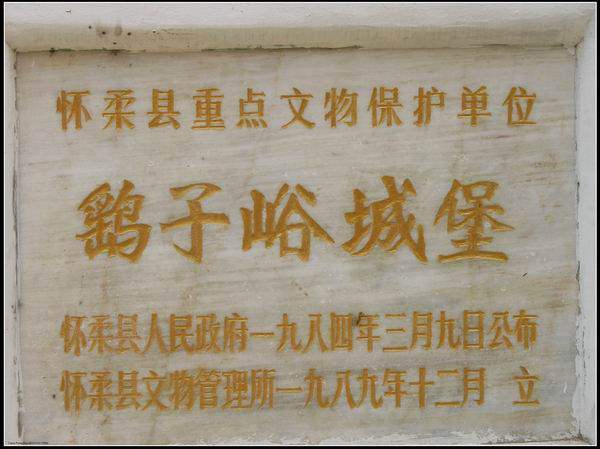 怀柔县重点文物保护单位
鹞子峪城堡
怀柔县人民政府一九八四年三月九日公布
怀柔县文物管理所一九八九年十二月 立